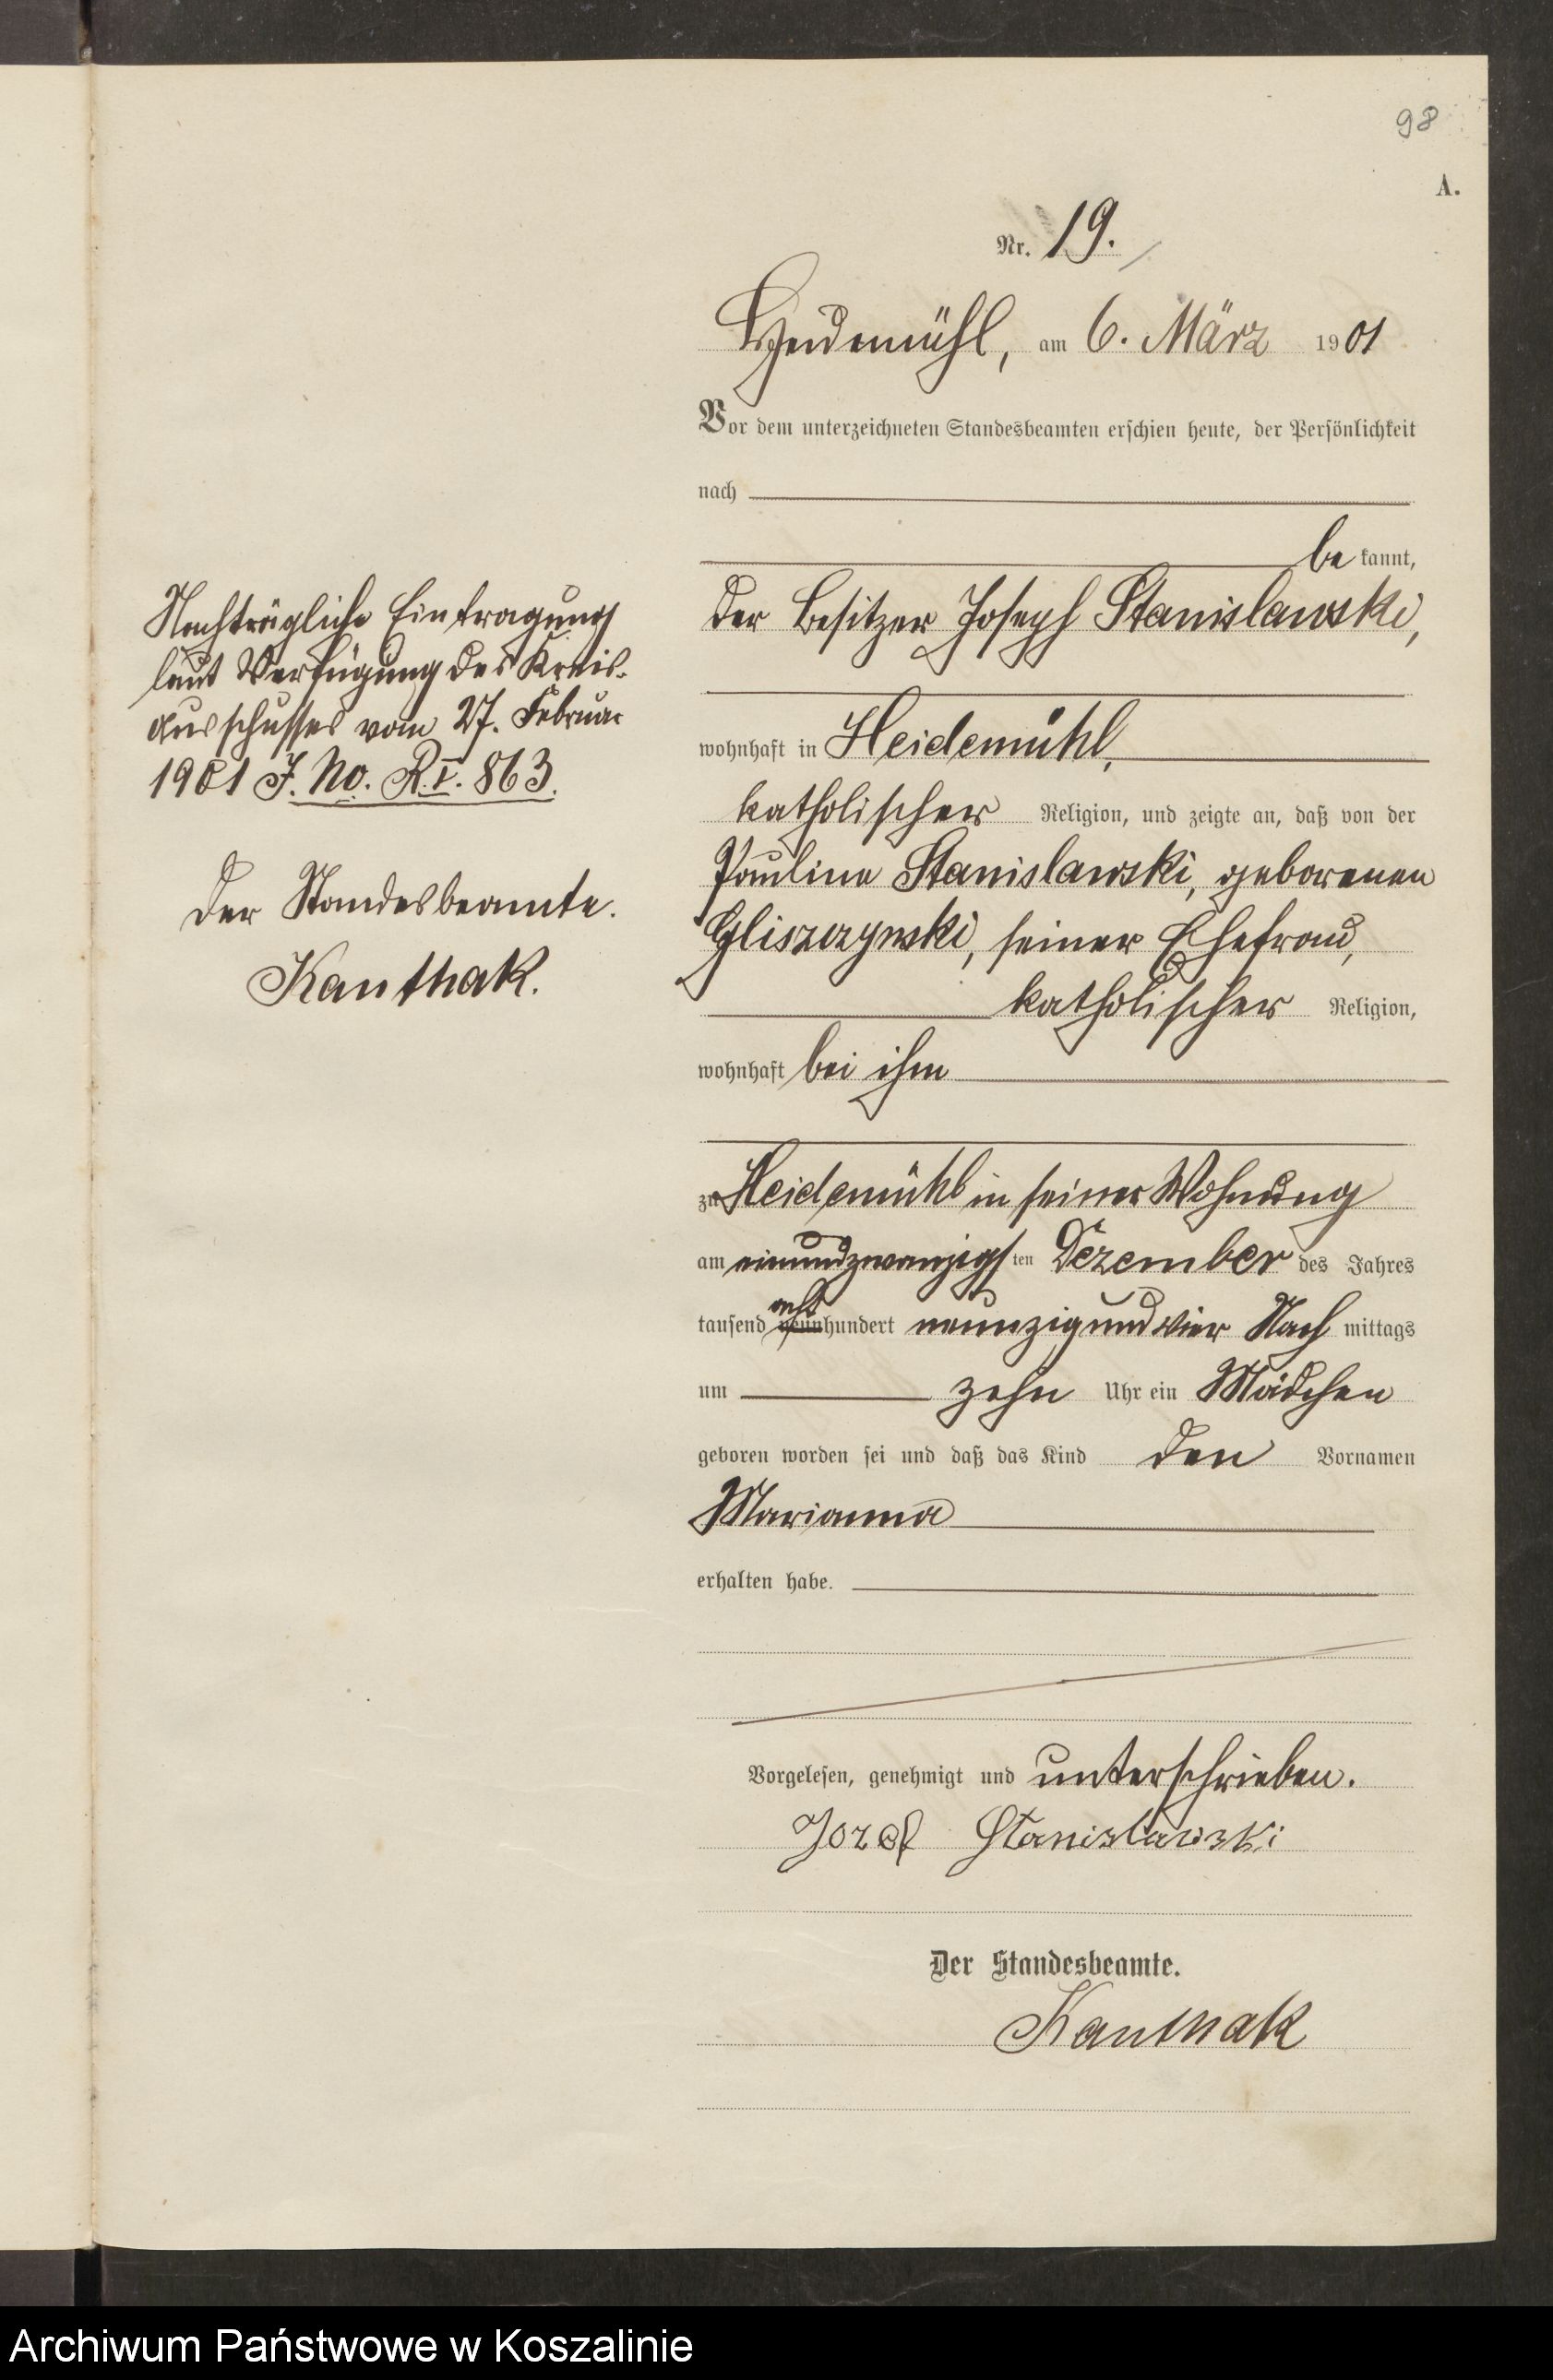 98
A.
Nr. 19.
Heidemühl, am 6. März 1901
Vor dem unterzeichneten Standesbeamten erschien heute, der Persönlichkeit
nach
be kannt,
der Besitzer Joseph Stanislawski,
wohnhaft in Heidemühl,
katholischer Religion, und zeigte an, daß von der
Pauline Stanislawski, geborenen
Gliszczynski, seiner Ehefrau,
katholischer Religion,
wohnhaft bei ihm
zu Heidemühl in seiner Wohnung
am einundzwanzigsten Dezember des Jahres
acht
tausend neunhundert neunzig und vier Nach mittags
um zehn Uhr ein Mädchen
geboren worden sei und daß das Kind den Vornamen
Marianna
erhalten habe.
Vorgelesen, genehmigt und unterschrieben.
Jozef Stanislawski
Der Standesbeamte.
Kanthak
Nachträgliche Eintragung
laut Verfügung des Kreis-
ausschusses vom 27. Februar
1901 J. No. R. I. 863.
Der Standesbeamte.
Kanthak.
Archiwum Państwowe w Koszalinie